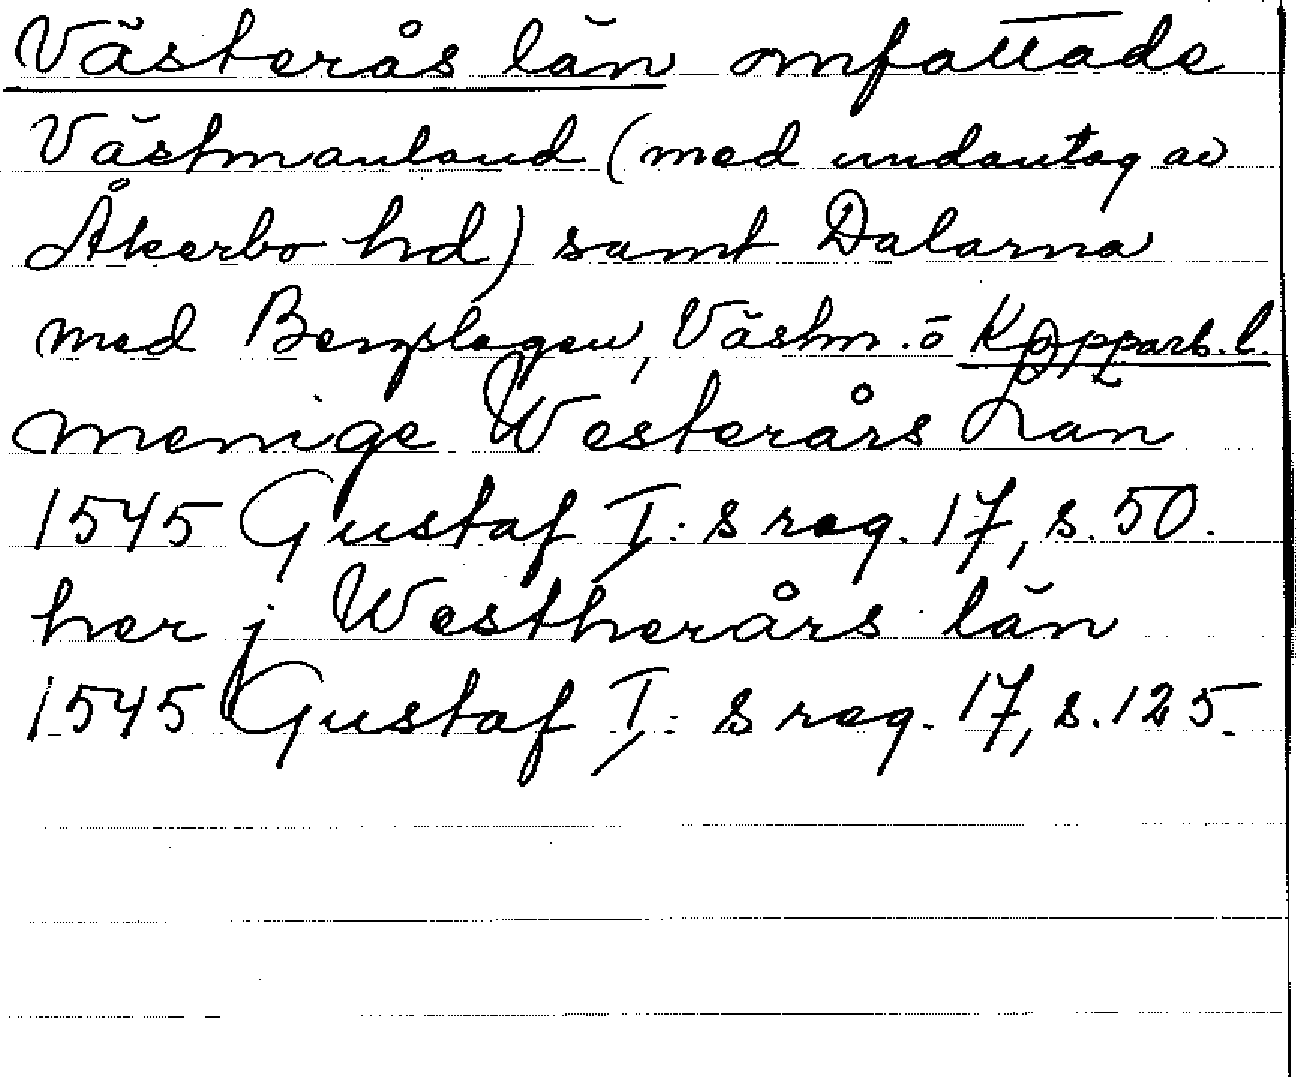 Västerås län omfattade
Västmanland (med undantag av
Åkerbo hd) samt Dalarna
med Bergslagen, Västm. o Kopparb. l.
menige Westerårs Län
1545 Gustaf I:s reg. 17, s. 50.
her j Westherårs län
1545 Gustaf I:s reg. 17, s. 125.